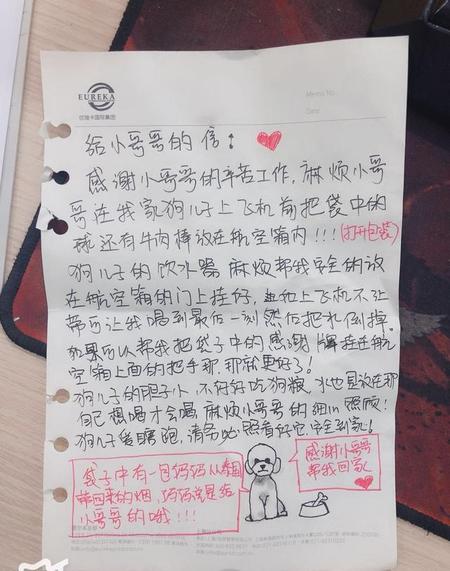 EUREKA
Memo No.
Date:
给小哥哥的信:
感谢小哥哥的辛苦工作,麻烦小哥
哥在我家狗儿子上飞机前把袋中的
球还有牛肉棒放在航空箱内!!!(打开包装)
狗儿子的饮水器 麻烦帮我安全的放
在航空箱的门上挂好,
带可让我喝到最后一刻然后把水倒掉。
如果可以帮我把袋子中的感谢牌挂在航
空箱上面的把手那,那就更好了!
狗儿子的胆子小,不好好吃狗粮,水也是放在那
自己想喝才会喝 麻烦小哥哥的细心照顾!
狗儿子爱瞎跑,请务必照看好它安全到家!
袋子中有一包妈妈从泰国
带回来的烟,妈妈说是给
小哥哥的哦!!!
感谢小哥哥
帮我回家